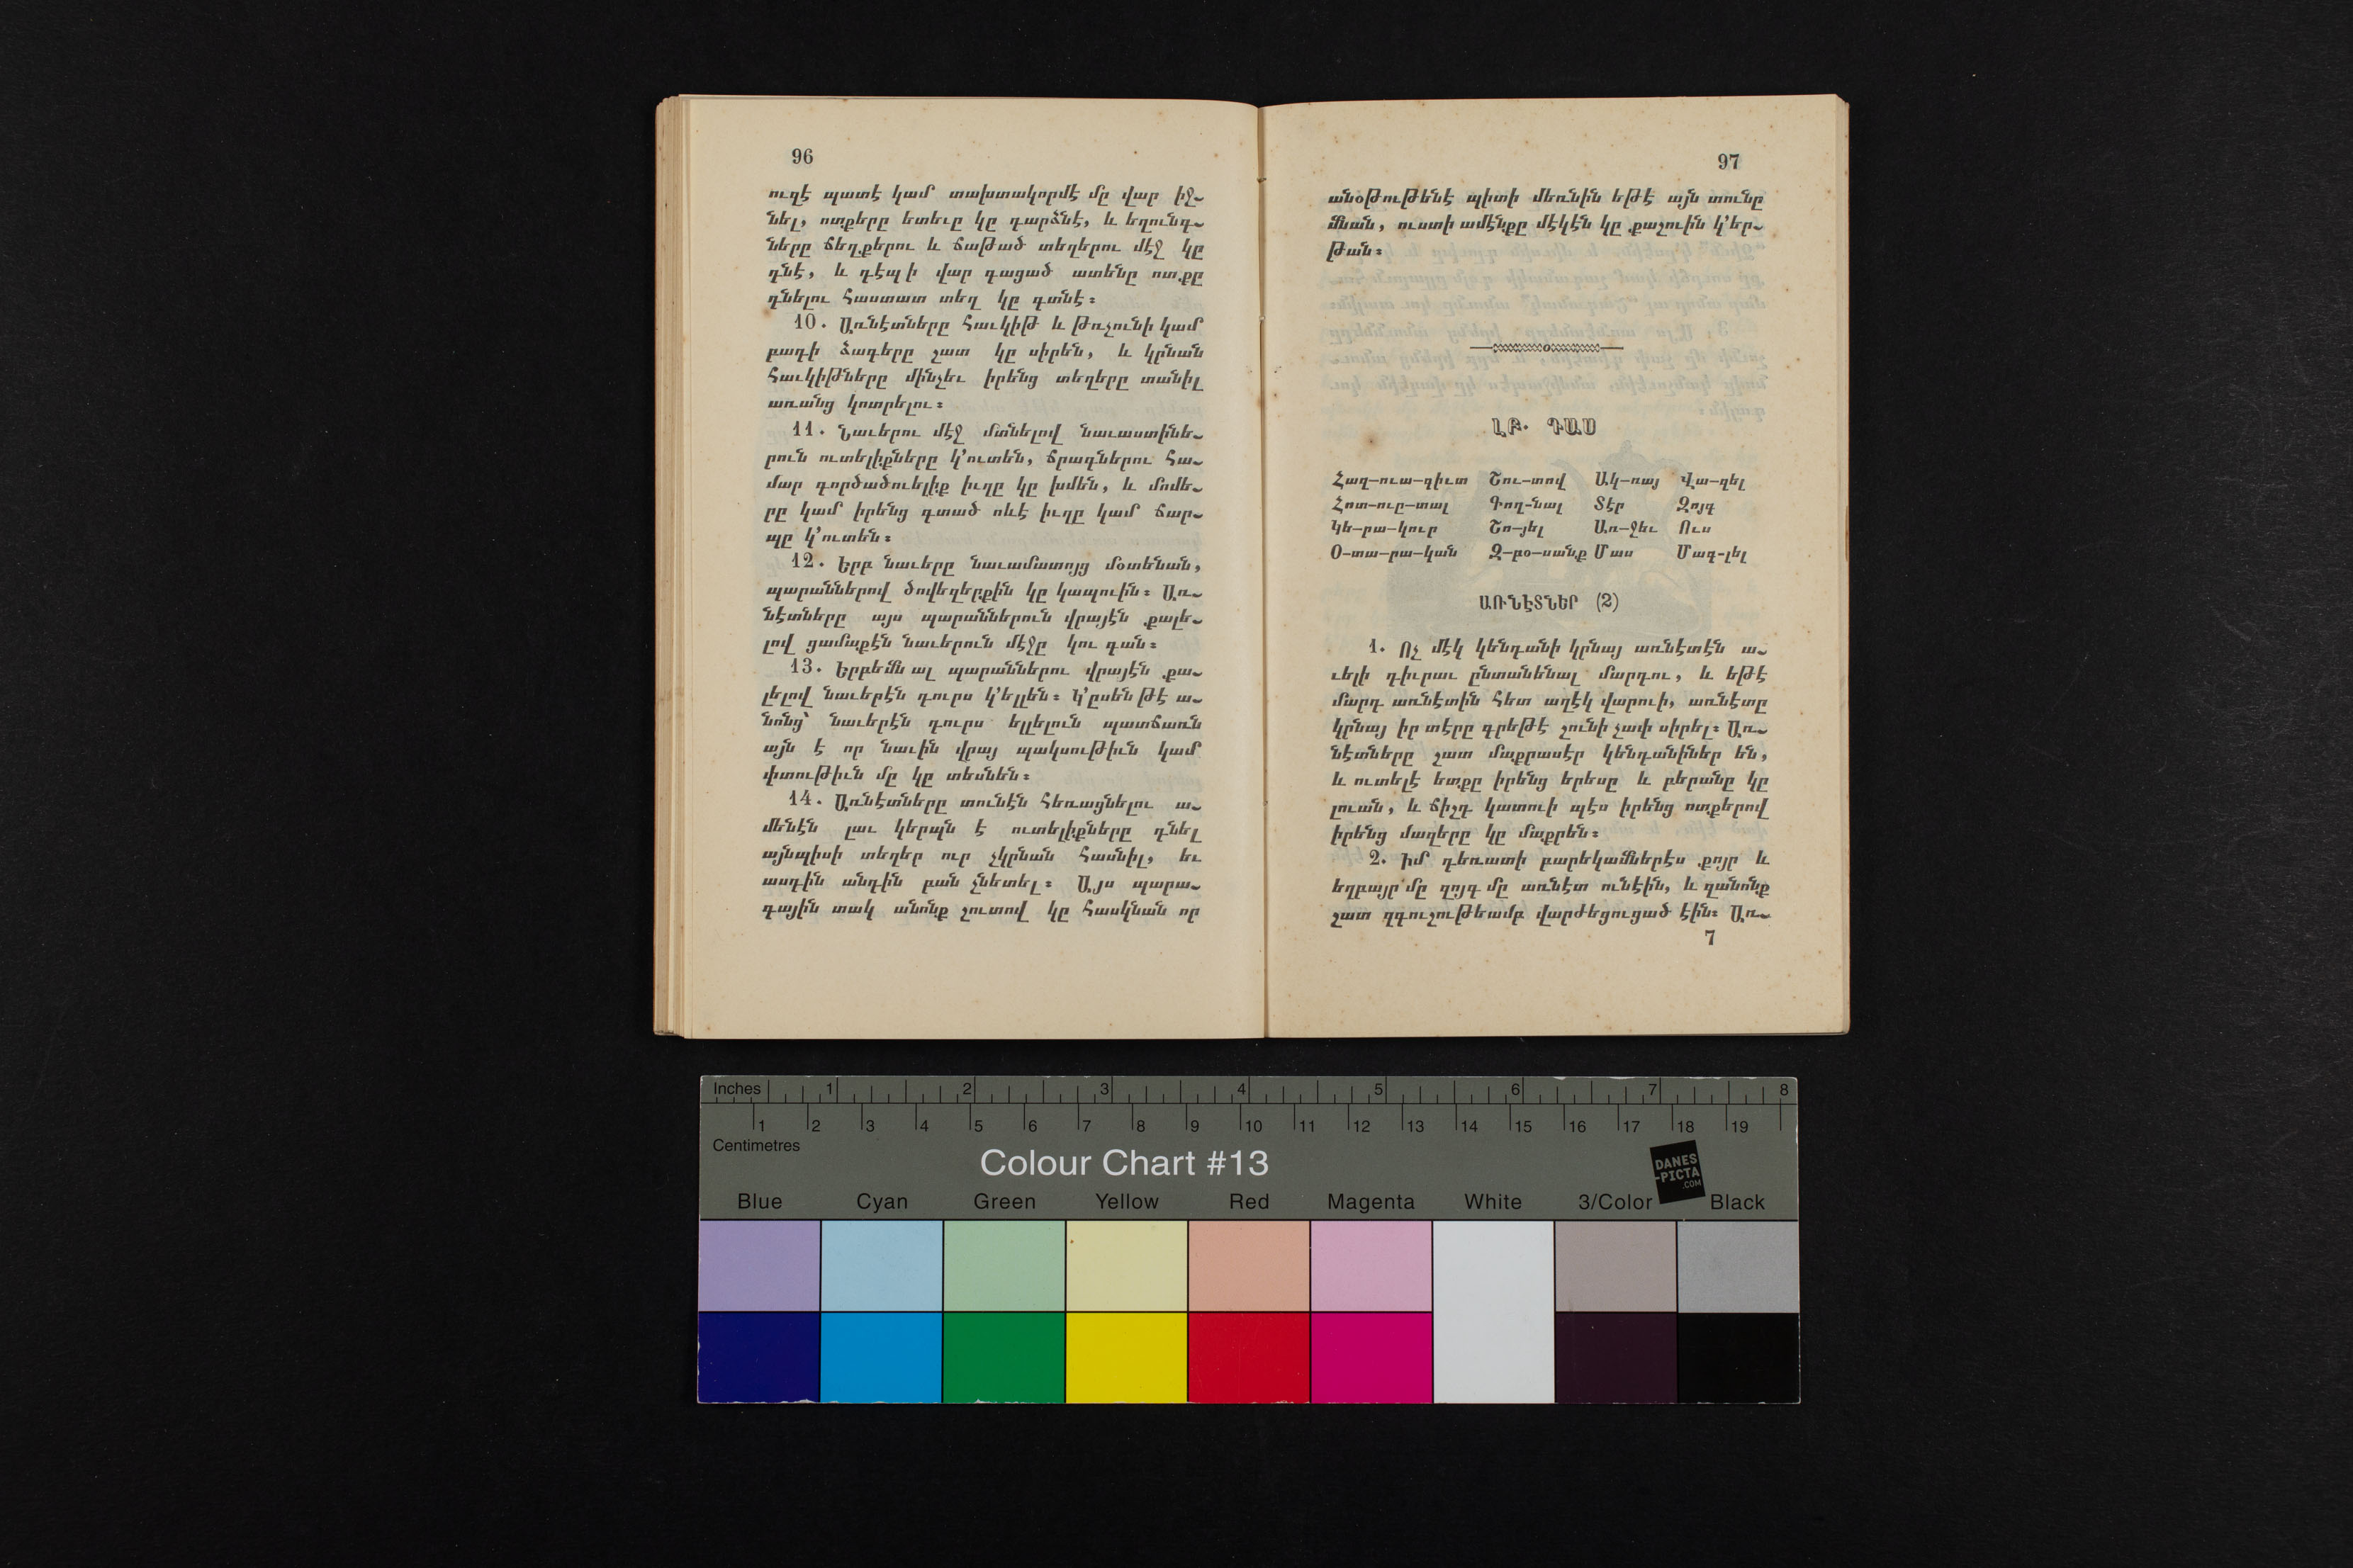 96
ուզէ պատէ կամ տախտակորմէ մը վար իջ֊
նել, ոտքերը ետեւը կը դարձնէ, և եղունգ֊
ները ճեղքերու և ճաթած տեղերու մէջ կը
դնէ, և դէպ ի վար գացած ատենը ոտքը
դնելու հաստատ տեղ կը գտնէ։
10. Առնէտները հաւկիթ և թռչունի կամ
բադի ձագերը շատ կը սիրեն, և կրնան
հաւկիթները մինչեւ իրենց տեղերը տանիլ
առանց կոտրելու։
11. Նաւերու մէջ մտնելով նաւաստինե֊
րուն ուտելիքները կ՚ուտեն, ճրագներու հա֊
մար գործածուելիք իւղը կը խմեն, և մոմե֊
րը կամ իրենց գտած ոևէ իւղը կամ ճար֊
պը կ՚ուտեն։
12. Երբ նաւերը նաւամատոյց մօտենան,
պարաններով ծովեղերքին կը կապուին։ Առ֊
նէտները այս պարաններուն վրայէն քալե֊
լով ցամաքէն նաւերուն մէջը կու գան։
13. Երբեմն ալ պարաններու վրայէն քա֊
լելով նաւերէն դուրս կ՚ելլեն։ Կ՚ըսեն թէ ա֊
նոնց՝ նաւերէն դուրս ելլելուն պատճառն
այն է որ նաւին վրայ պակսութիւն կամ
փտութիւն մը կը տեսնեն։
14. Առնէտները տունէն հեռացնելու ա֊
մենէն լաւ կերպն է ուտելիքները դնել
այնպիսի տեղեր ուր չկրնան հասնիլ, եւ
ասդին անդին բան չնետել։ Այս պարա֊
գային տակ անոնք շուտով կը հասկնան որ
97
անօթութենէ պիտի մեռնին եթէ այն տունը
մնան, ուստի ամէնքը մէկէն կը քաշուին կ՚եր֊
թան։
ԼԲ. ԴԱՍ
Հազ–ուա–գիւտ Շու–տով Ակ–ռայ Վա–զել
Հոտ–ուը–տալ Գող–նալ Տէր Զոյգ
Կե–րա–կուր Շո–յել Առ–ջեւ Ուս
Օ–տա–րա–կան Զ–բօ–սանք Մաս Մագ–լել
ԱՌՆԷՏՆԵՐ (2)
1. Ոչ մէկ կենդանի կրնայ առնէտէն ա֊
ւելի դիւրաւ ընտանենալ մարդու, և եթէ
մարդ առնէտին հետ աղէկ վարուի, առնէտը
կրնայ իր տէրը գրեթէ շունի չափ սիրել։ Առ֊
նէտները շատ մաքրասէր կենդանիներ են,
և ուտելէ ետքը իրենց երեսը և բերանը կը
լուան, և ճիշդ կատուի պէս իրենց ոտքերով
իրենց մազերը կը մաքրեն։
2. Իմ դեռատի բարեկամներէս քոյր և
եղբայր մը զոյգ մը առնէտ ունէին, և զանոնք
շատ զգուշութեամբ վարժեցուցած էին։ Առ֊
7
Inches 1 2 3 4 5 6 7 8
1 2 3 4 5 6 7 8 9 10 11 12 13 14 15 16 17 18 19
Centimetres
Colour Chart #13
DANES
-PICTA
.COM
Blue Cyan Green Yellow Red Magenta White 3/Color Black